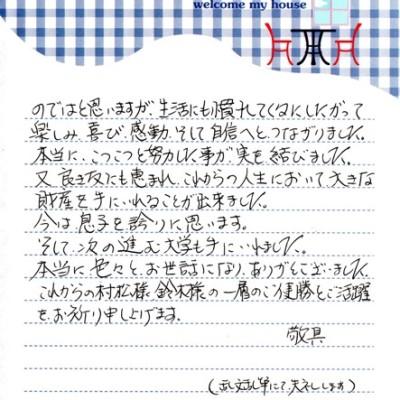 welcome my house
のではと思いますが、生活にも慣れてくるにしたがって
楽しみ、喜び、感動、そして自信へとつながりました。
本当に、こつこつと努力した事が実を結びました。
又、良き友にも恵まれ、これからの人生において大きな
財産を手にいれることが出来ました。
今は息子を誇りに思います。
そして、次の進む大学も手にいれました。
本当に色々と、お世話になり、ありがとうございました。
これからの村松様、鈴木様の一層のご優勝とご活躍
を、お祈り申し上げます。
敬具
(乱文乱筆にて失礼します)